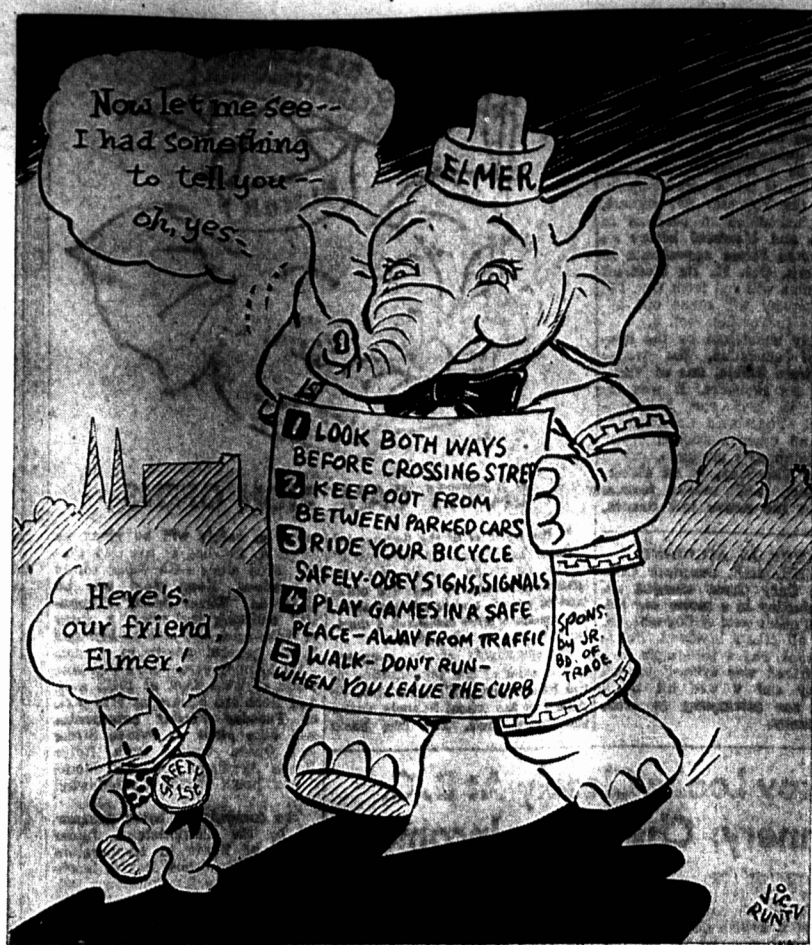 Now let me see--
I had something
to tell you--
oh, yes-
ELMER
1 LOOK BOTH WAYS
BEFORE CROSSING STRE
2 KEEP OUT FROM
BETWEEN PARKED CARS
3 RIDE YOUR BICYCLE
SAFELY-OBEY SIGNS, SIGNALS
4 PLAY GAMES IN A SAFE
PLACE-AWAY FROM TRAFFIC
5 WALK-DON'T RUN-
WHEN YOU LEAVE THE CURB
SPONS.
by JR.
BD. OF
TRADE
Here's
our friend,
Elmer!
SAFETY
1st
Vic
RUNTZ